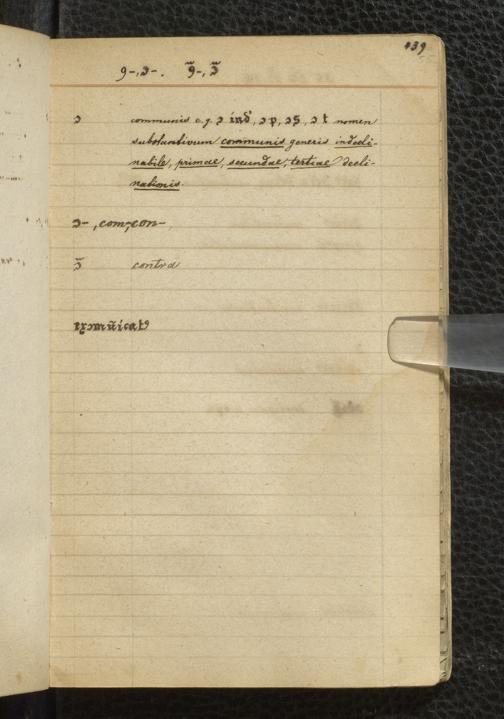 139
9-, ɔ-. 9̃-, ɔ̃
ɔ communis e.g. ɔ ind̄, ɔ p, ɔ s̄, ɔ t nomen
substantivum communis generis indecli-
nabile, primae, secundae, tertiae decli-
nationis.
ɔ-, com-, con-
ɔ̃ contra
exɔmũicat